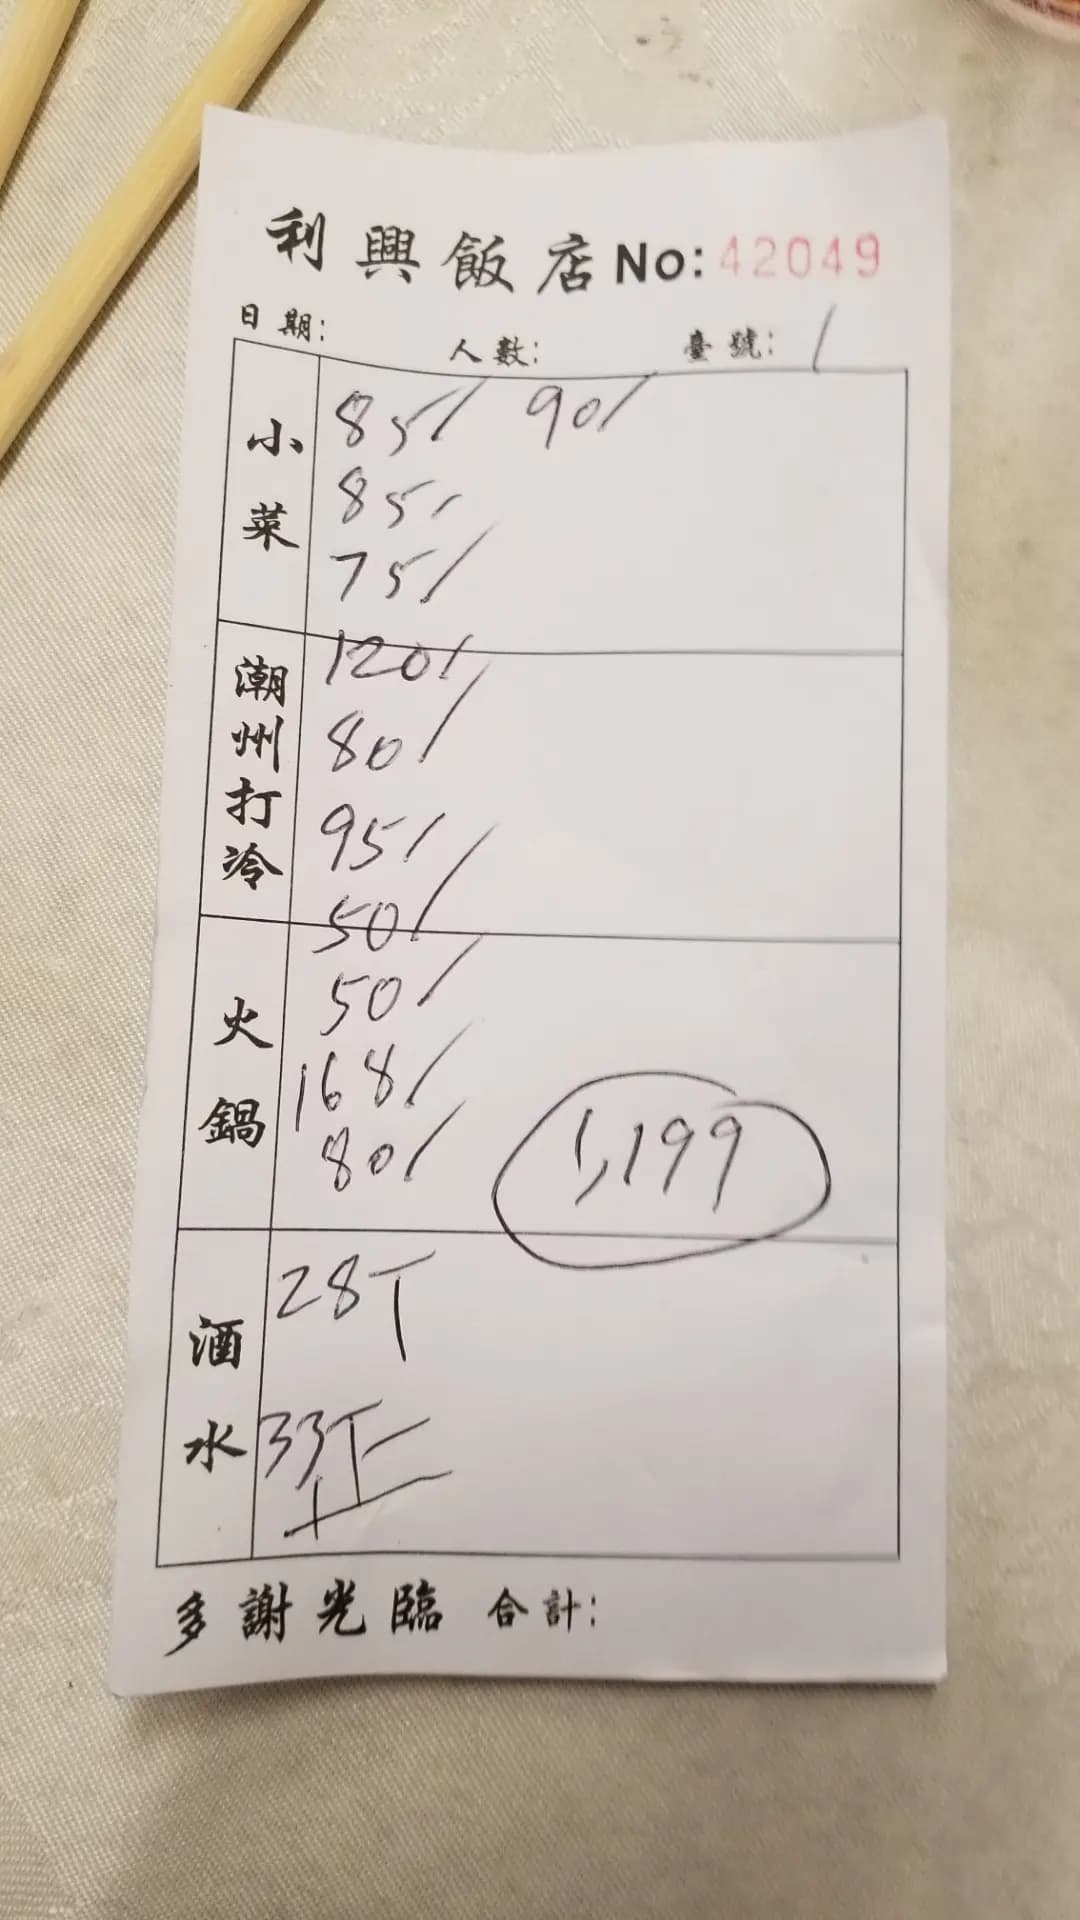 利興飯店 No: 42049
日期: 人數: 臺號: 1
小菜
85/ 90/
85/
75/
潮州打冷
120/
80/
95/
50/
火鍋
50/
168/
80/
1,199
酒水
28T
33
多謝光臨 合計: